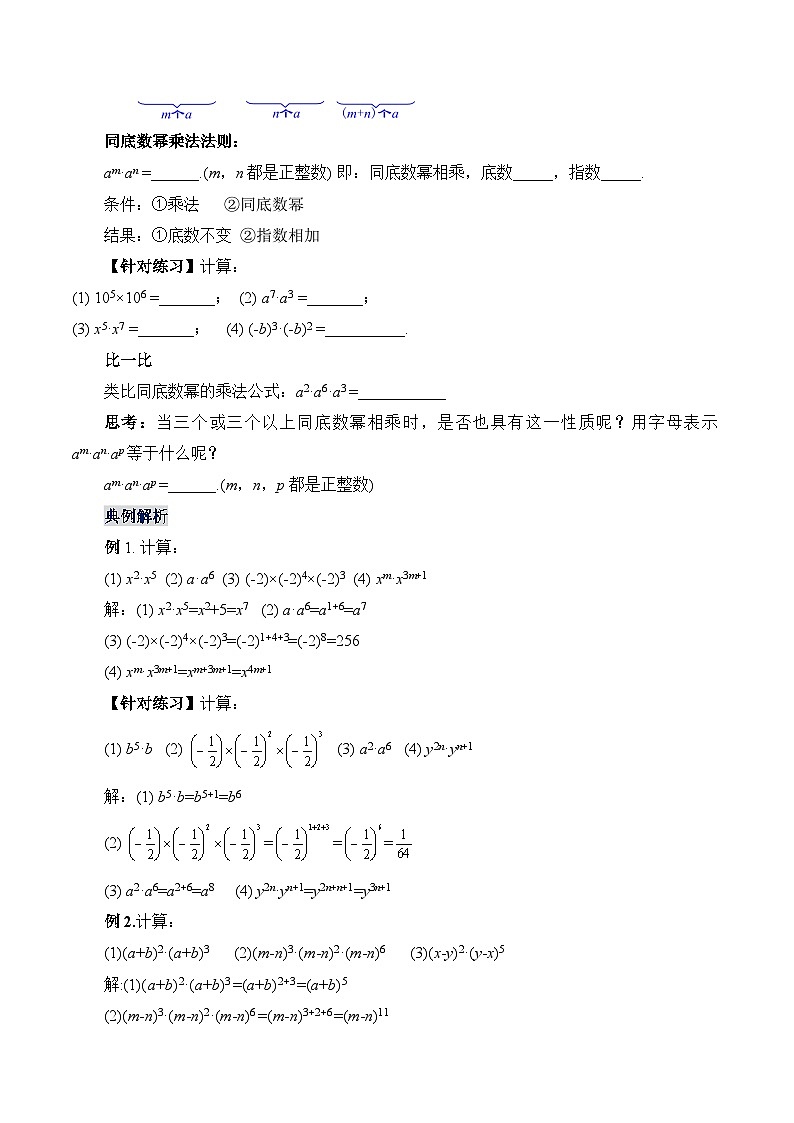 m个a n个a (m+n)个a
同底数幂乘法法则：
aᵐ·aⁿ=______.(m，n都是正整数) 即：同底数幂相乘，底数_____，指数_____.
条件：①乘法 ②同底数幂
结果：①底数不变 ②指数相加
【针对练习】计算：
(1) 10⁵×10⁶=_______； (2) a⁷·a³=_______；
(3) x⁵·x⁷=_______； (4) (-b)³·(-b)²=__________.
比一比
类比同底数幂的乘法公式：a²·a⁶·a³=___________
思考：当三个或三个以上同底数幂相乘时，是否也具有这一性质呢？用字母表示
aᵐ·aⁿ·aᵖ等于什么呢？
aᵐ·aⁿ·aᵖ=______.(m，n，p都是正整数)
典例解析
例1. 计算：
(1) x²·x⁵ (2) a·a⁶ (3) (-2)×(-2)⁴×(-2)³ (4) xᵐ·x³ᵐ⁺¹
解：(1) x²·x⁵=x²+5=x⁷ (2) a·a⁶=a¹⁺⁶=a⁷
(3) (-2)×(-2)⁴×(-2)³=(-2)¹⁺⁴⁺³=(-2)⁸=256
(4) xᵐ·x³ᵐ⁺¹=xᵐ⁺³ᵐ⁺¹=x⁴ᵐ⁺¹
【针对练习】计算：
(1) b⁵·b (2) (-1/2)×(-1/2)²×(-1/2)³ (3) a²·a⁶ (4) y²ⁿ·yⁿ⁺¹
解：(1) b⁵·b=b⁵⁺¹=b⁶
(2) (-1/2)×(-1/2)²×(-1/2)³=(-1/2)¹⁺²⁺³=(-1/2)⁶=1/64
(3) a²·a⁶=a²⁺⁶=a⁸ (4) y²ⁿ·yⁿ⁺¹=y²ⁿ⁺ⁿ⁺¹=y³ⁿ⁺¹
例2.计算：
(1)(a+b)²·(a+b)³ (2)(m-n)³·(m-n)²·(m-n)⁶ (3)(x-y)²·(y-x)⁵
解:(1)(a+b)²·(a+b)³=(a+b)²⁺³=(a+b)⁵
(2)(m-n)³·(m-n)²·(m-n)⁶=(m-n)³⁺²⁺⁶=(m-n)¹¹